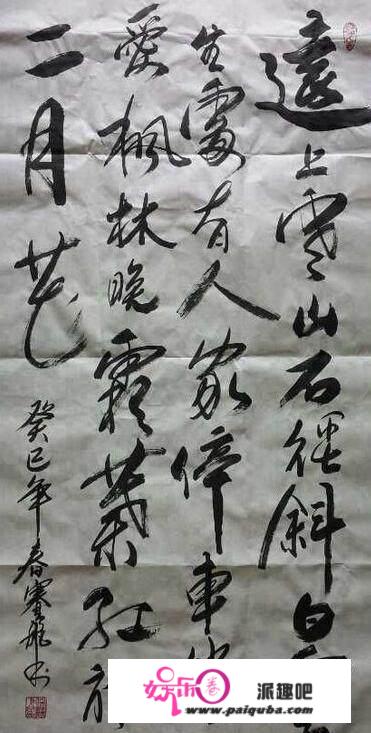 遠上寒山石徑斜白雲
生處有人家停車坐
愛楓林晚霜葉紅於
二月花
癸巳年春賽飛书
娱乐圈 派趣吧
www.paiquba.com